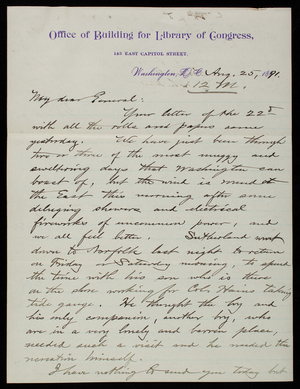 Office of Building for Library of Congress,
145 EAST CAPITOL STREET.
Washington, D.C. Aug. 25, 1891.
12 M.
My dear General:
Your letter of the 22d
with all the rolls and papers came
yesterday. We have just been through
two or three of the most muggy and
sweltering days that Washington can
boast of, but the wind is round to
the East this morning after some
deluging showers and electrical
fireworks of uncommon power, and
we all feel better. Sutherland went
down to Norfolk last night to return
on Friday or Saturday morning to spend
the time with his son who is there
on the shore working for Col. Hains taking
tide gauge. He thought the boy and
his only companion, another boy, who
are in a very lonely and barren place,
needed such a visit and he needed the
vacation himself.
I have nothing to send you today but